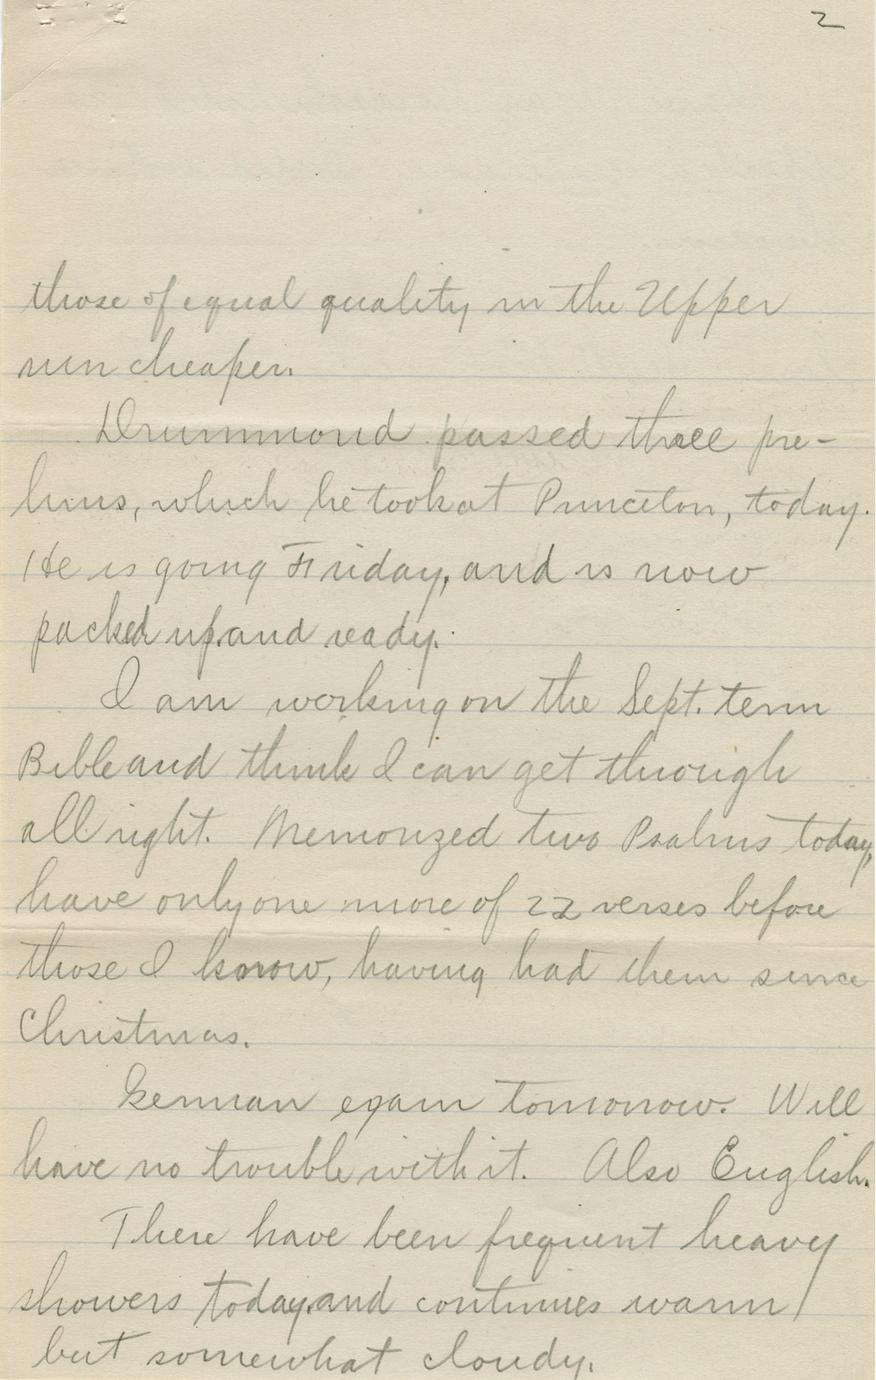 2
those of equal quality in the Upper
run cheaper.
Drummond passed three pre-
lims, which he took at Princeton, today.
He is going Friday, and is now
packed up and ready.
I am working on the Sept. term
Bible and think I can get through
all right. Memorized two Psalms today,
have only one more of 22 verses before
those I know, having had them since
Christmas.
German exam tomorrow. Will
have no trouble with it. Also English.
There have been frequent heavy
showers today, and continues warm
but somewhat cloudy.